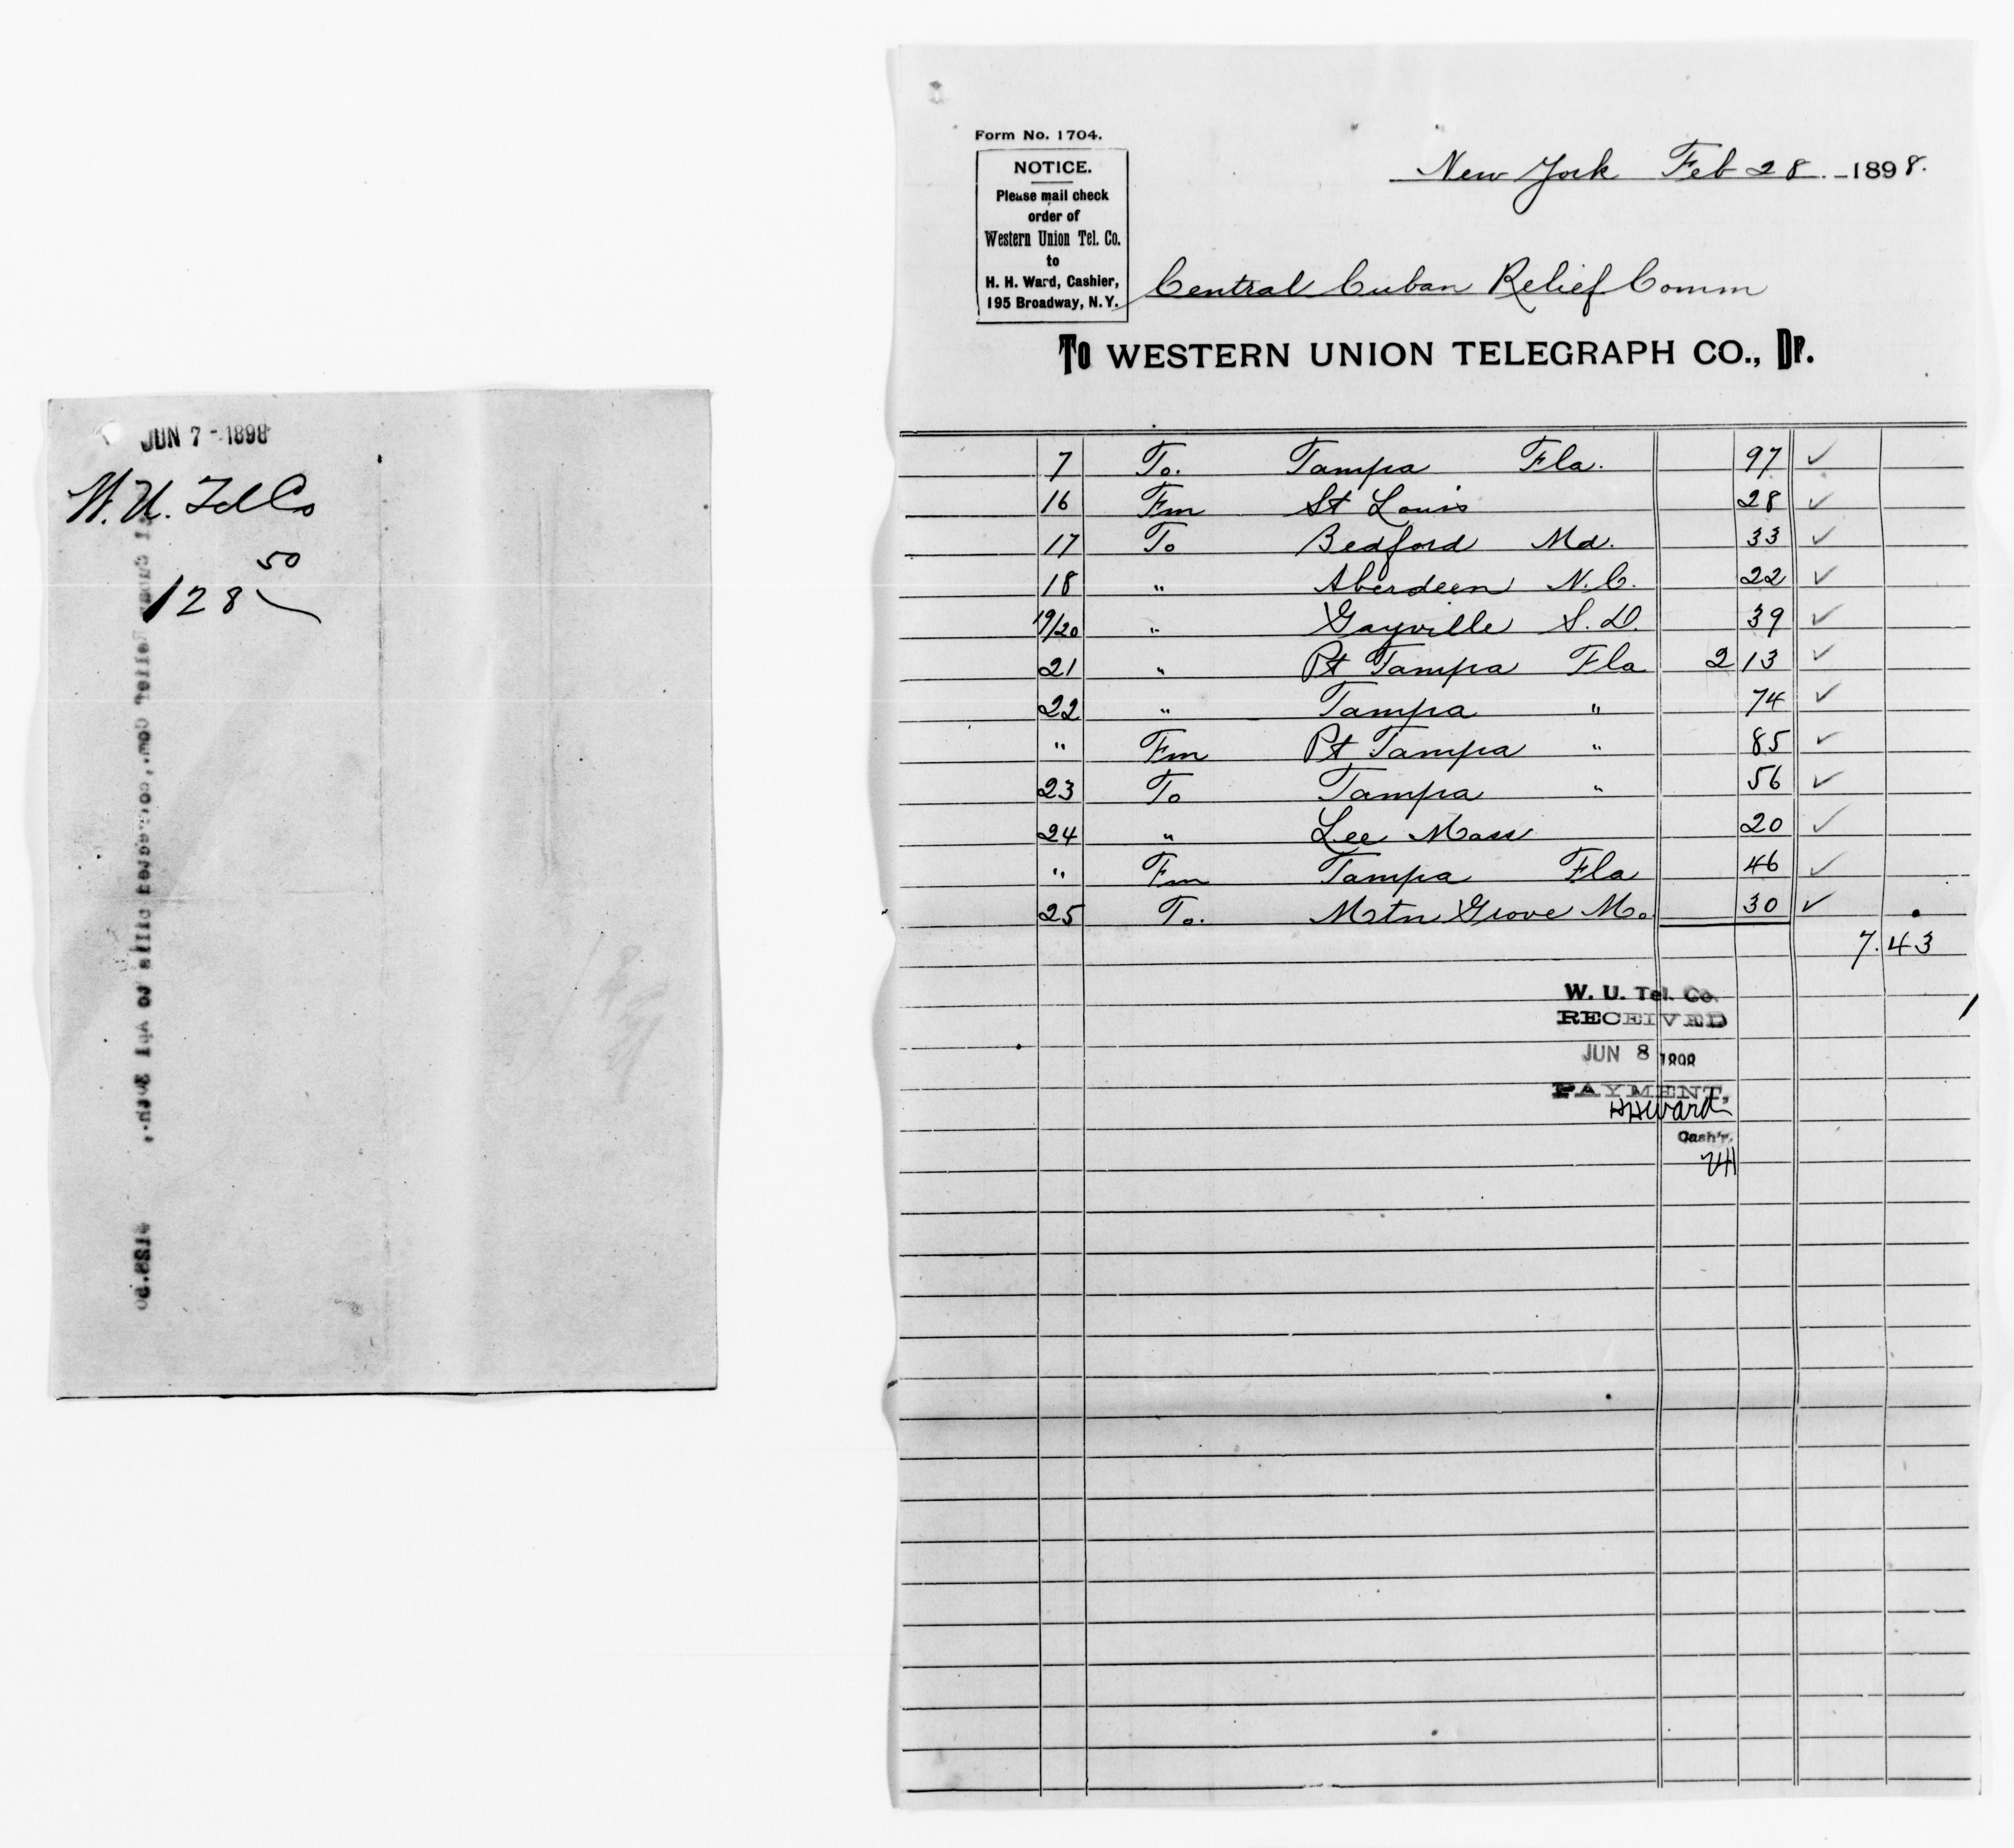 JUN 7 - 1898
W. U. Tel Co
128 50
Form No. 1704.
NOTICE.
Please mail check
order of
Western Union Tel. Co.
to
H. H. Ward, Cashier,
195 Broadway, N.Y.
New York Feb 28. 1898.
Central Cuban Relief Comm
To WESTERN UNION TELEGRAPH CO., Dr.
7 To. Tampa Fla. 97 ✓
16 Fm St Louis 28 ✓
17 To Bedford Md. 33 ✓
18 " Aberdeen N.C. 22 ✓
19/20 " Gayville S.D. 39 ✓
21 " Pt Tampa Fla 2 13 ✓
22 " Tampa " 74 ✓
" Fm Pt Tampa " 85 ✓
23 To Tampa " 56 ✓
24 " Lee Mass 20 ✓
" Fm Tampa Fla 46 ✓
25 To. Mtn Grove Mo. 30 ✓
7.43
W. U. Tel. Co.
RECEIVED
JUN 8
PAYMENT,
HHWard
Cash'r.